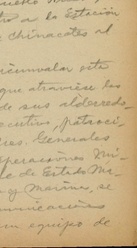 tro a la Estación
e Chinacotes al
circunvalar este
que atraviese las
de sus alderredo-
cutivo, patroci-
Generales
Operaciones Mi-
de Estado Ma-
y Marina, se
omunicacion
un equipo de